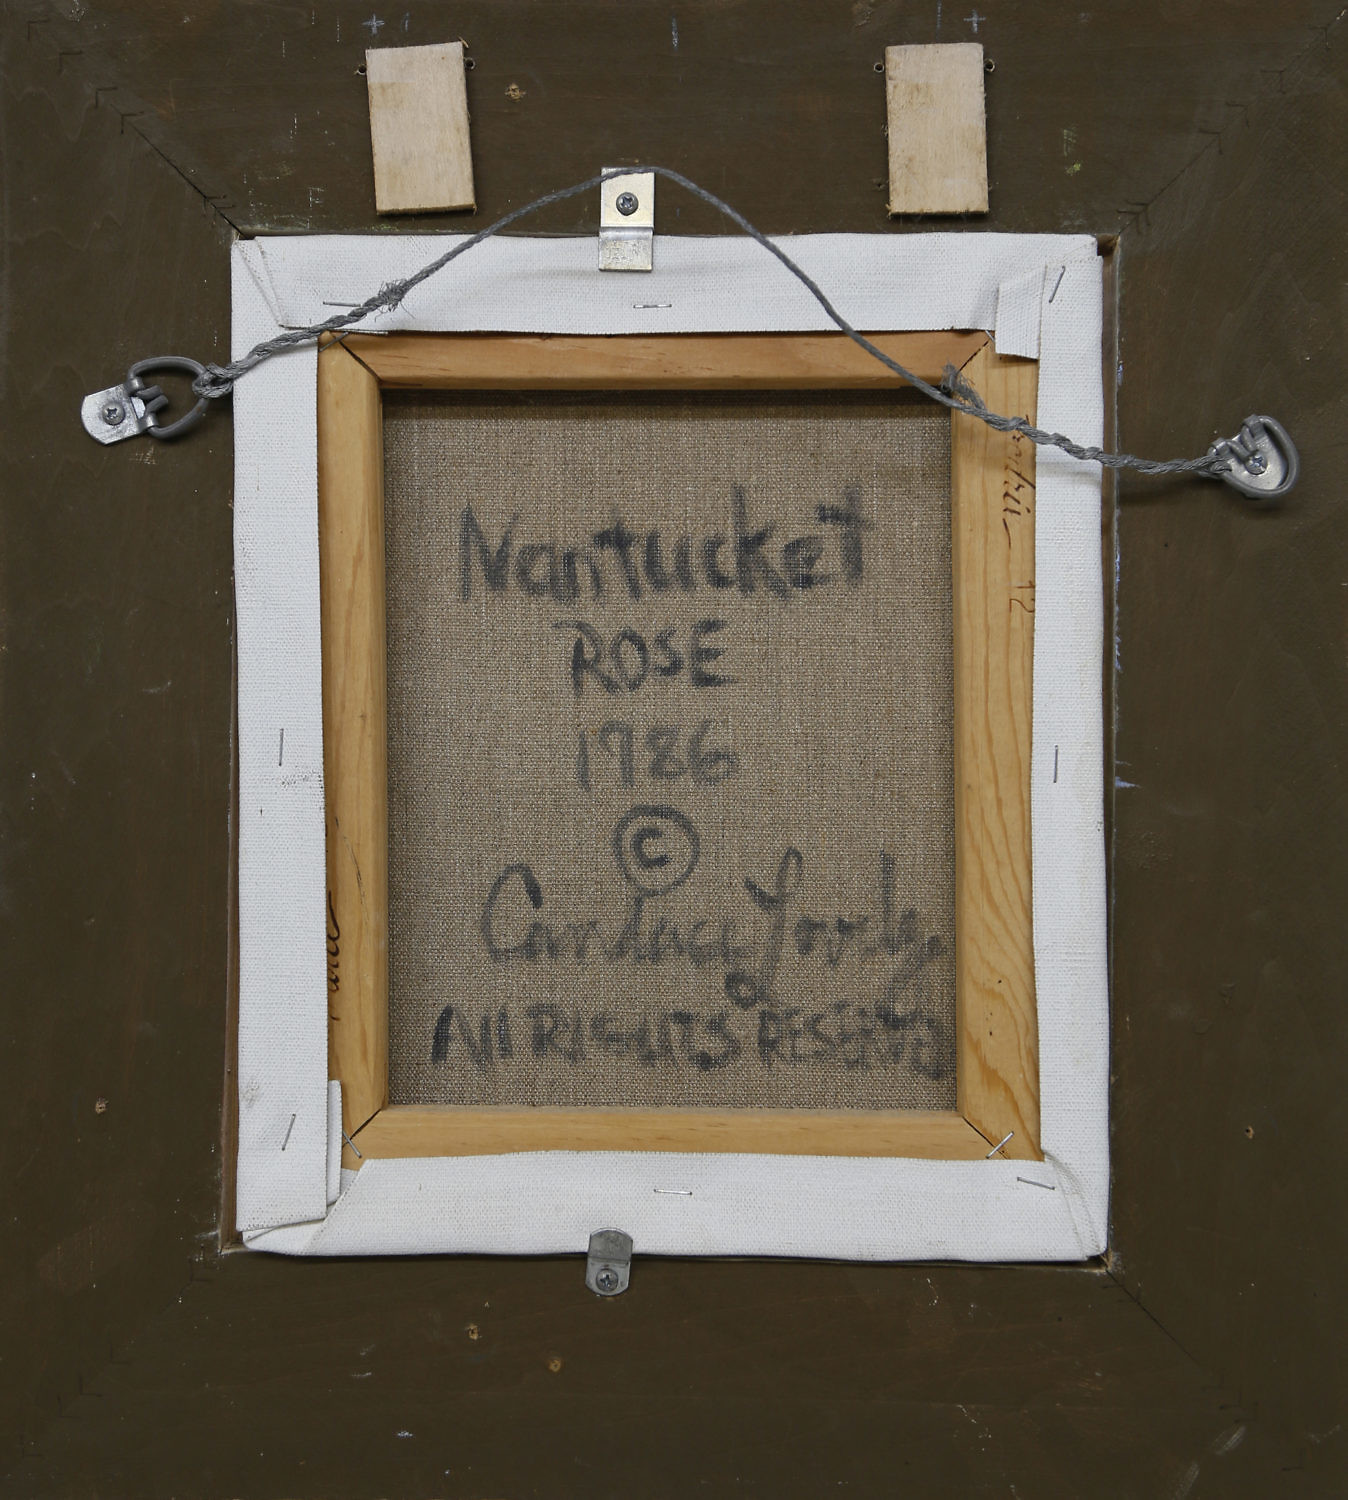 Nantucket
ROSE
1986
©
Candace Lovely
All RIGHTS RESERVED
12